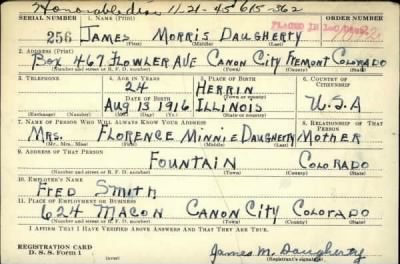 Honorable dis. 11-21-45 615-362
SERIAL NUMBER 1. NAME (Print) ORDER NUMBER
256 JAMES MORRIS DAUGHERTY
(First) (Middle) (Last)
2. ADDRESS (Print)
BOX 467 FLOWLER AVE CANON CITY FREMONT COLORADO
(Number and street or R. F. D. number) (Town) (County) (State)
3. TELEPHONE 4. AGE IN YEARS 5. PLACE OF BIRTH 6. COUNTRY OF CITIZENSHIP
24 HERRIN
DATE OF BIRTH (Town or county)
AUG 13 1916 ILLINOIS U.S.A
(Exchange) (Number) (Mo.) (Day) (Yr.) (State or country)
7. NAME OF PERSON WHO WILL ALWAYS KNOW YOUR ADDRESS 8. RELATIONSHIP OF THAT PERSON
MRS. FLORENCE MINNIE DAUGHERTY MOTHER
(Mr., Mrs., Miss) (First) (Middle) (Last)
9. ADDRESS OF THAT PERSON
FOUNTAIN COLORADO
(Number and street or R. F. D. number) (Town) (County) (State)
10. EMPLOYER'S NAME
FRED SMITH
11. PLACE OF EMPLOYMENT OR BUSINESS
624 MACON CANON CITY COLORADO
(Number and street or R. F. D. number) (Town) (County) (State)
I AFFIRM THAT I HAVE VERIFIED ABOVE ANSWERS AND THAT THEY ARE TRUE.
REGISTRATION CARD
D. S. S. FORM 1 James M. Daugherty
(Registrant's signature)